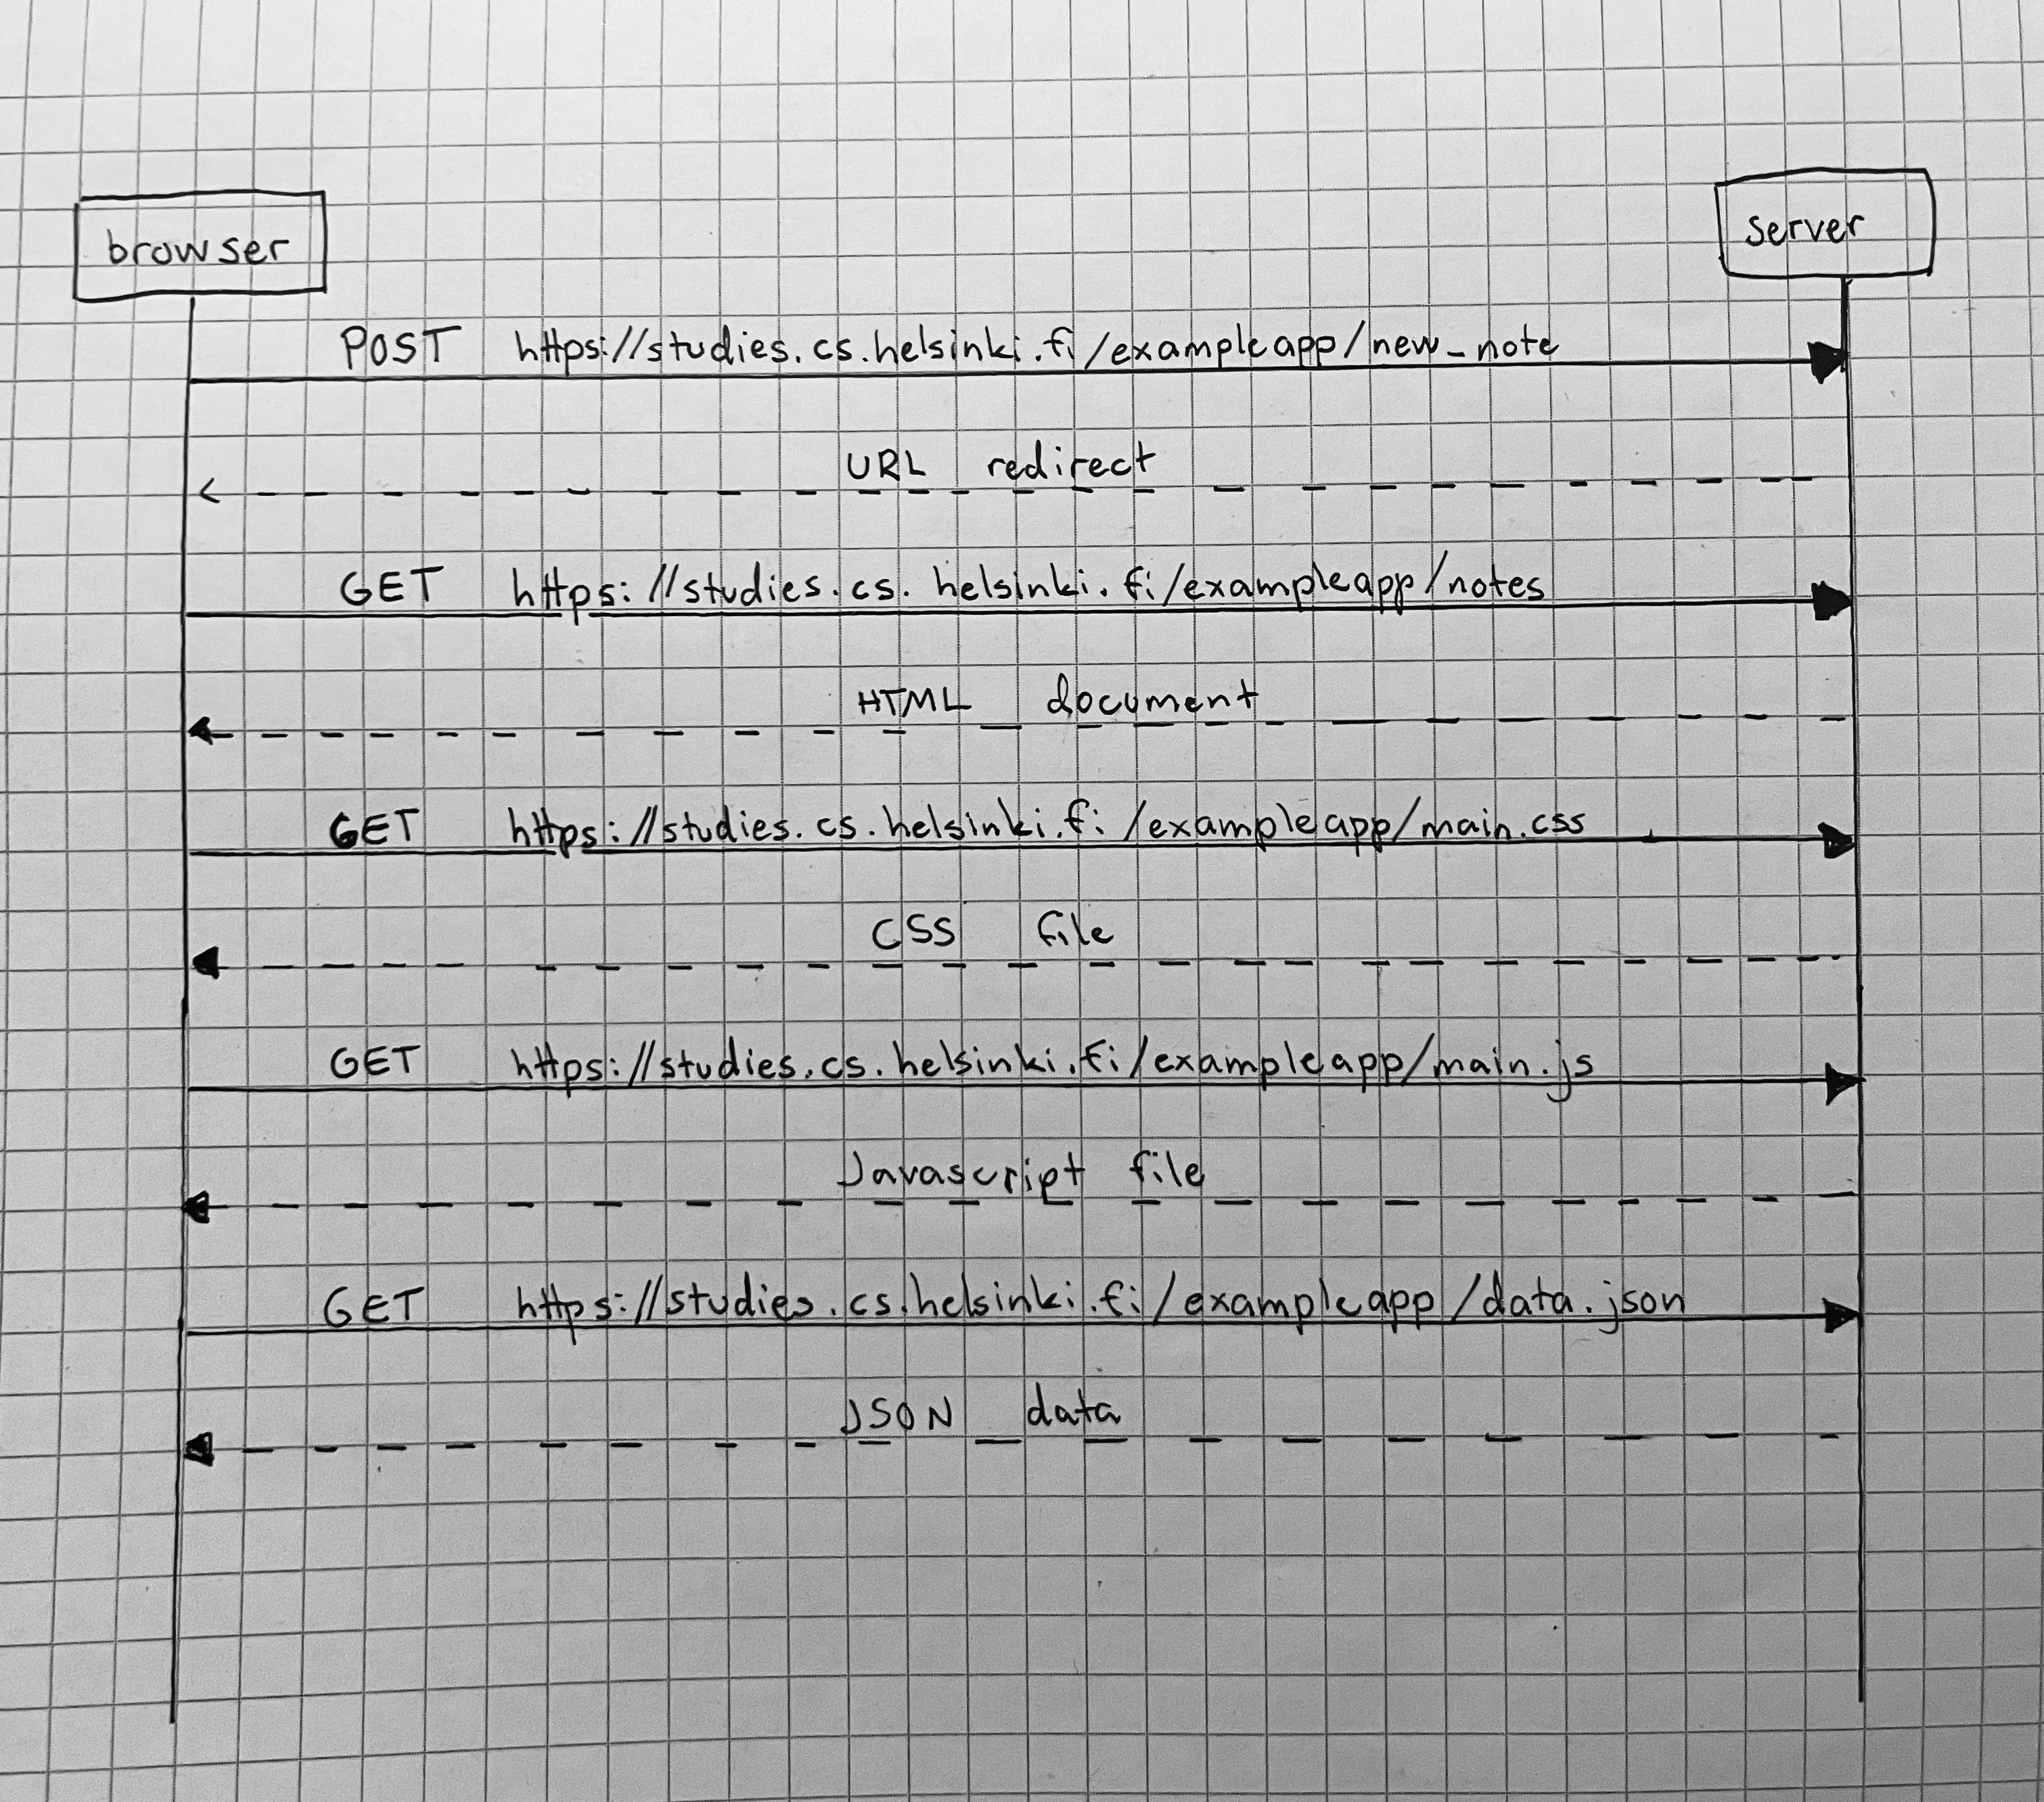 browser
server
POST https://studies.cs.helsinki.fi/exampleapp/new_note
URL redirect
GET https://studies.cs.helsinki.fi/exampleapp/notes
HTML document
GET https://studies.cs.helsinki.fi/exampleapp/main.css
CSS file
GET https://studies.cs.helsinki.fi/exampleapp/main.js
Javascript file
GET https://studies.cs.helsinki.fi/exampleapp/data.json
JSON data